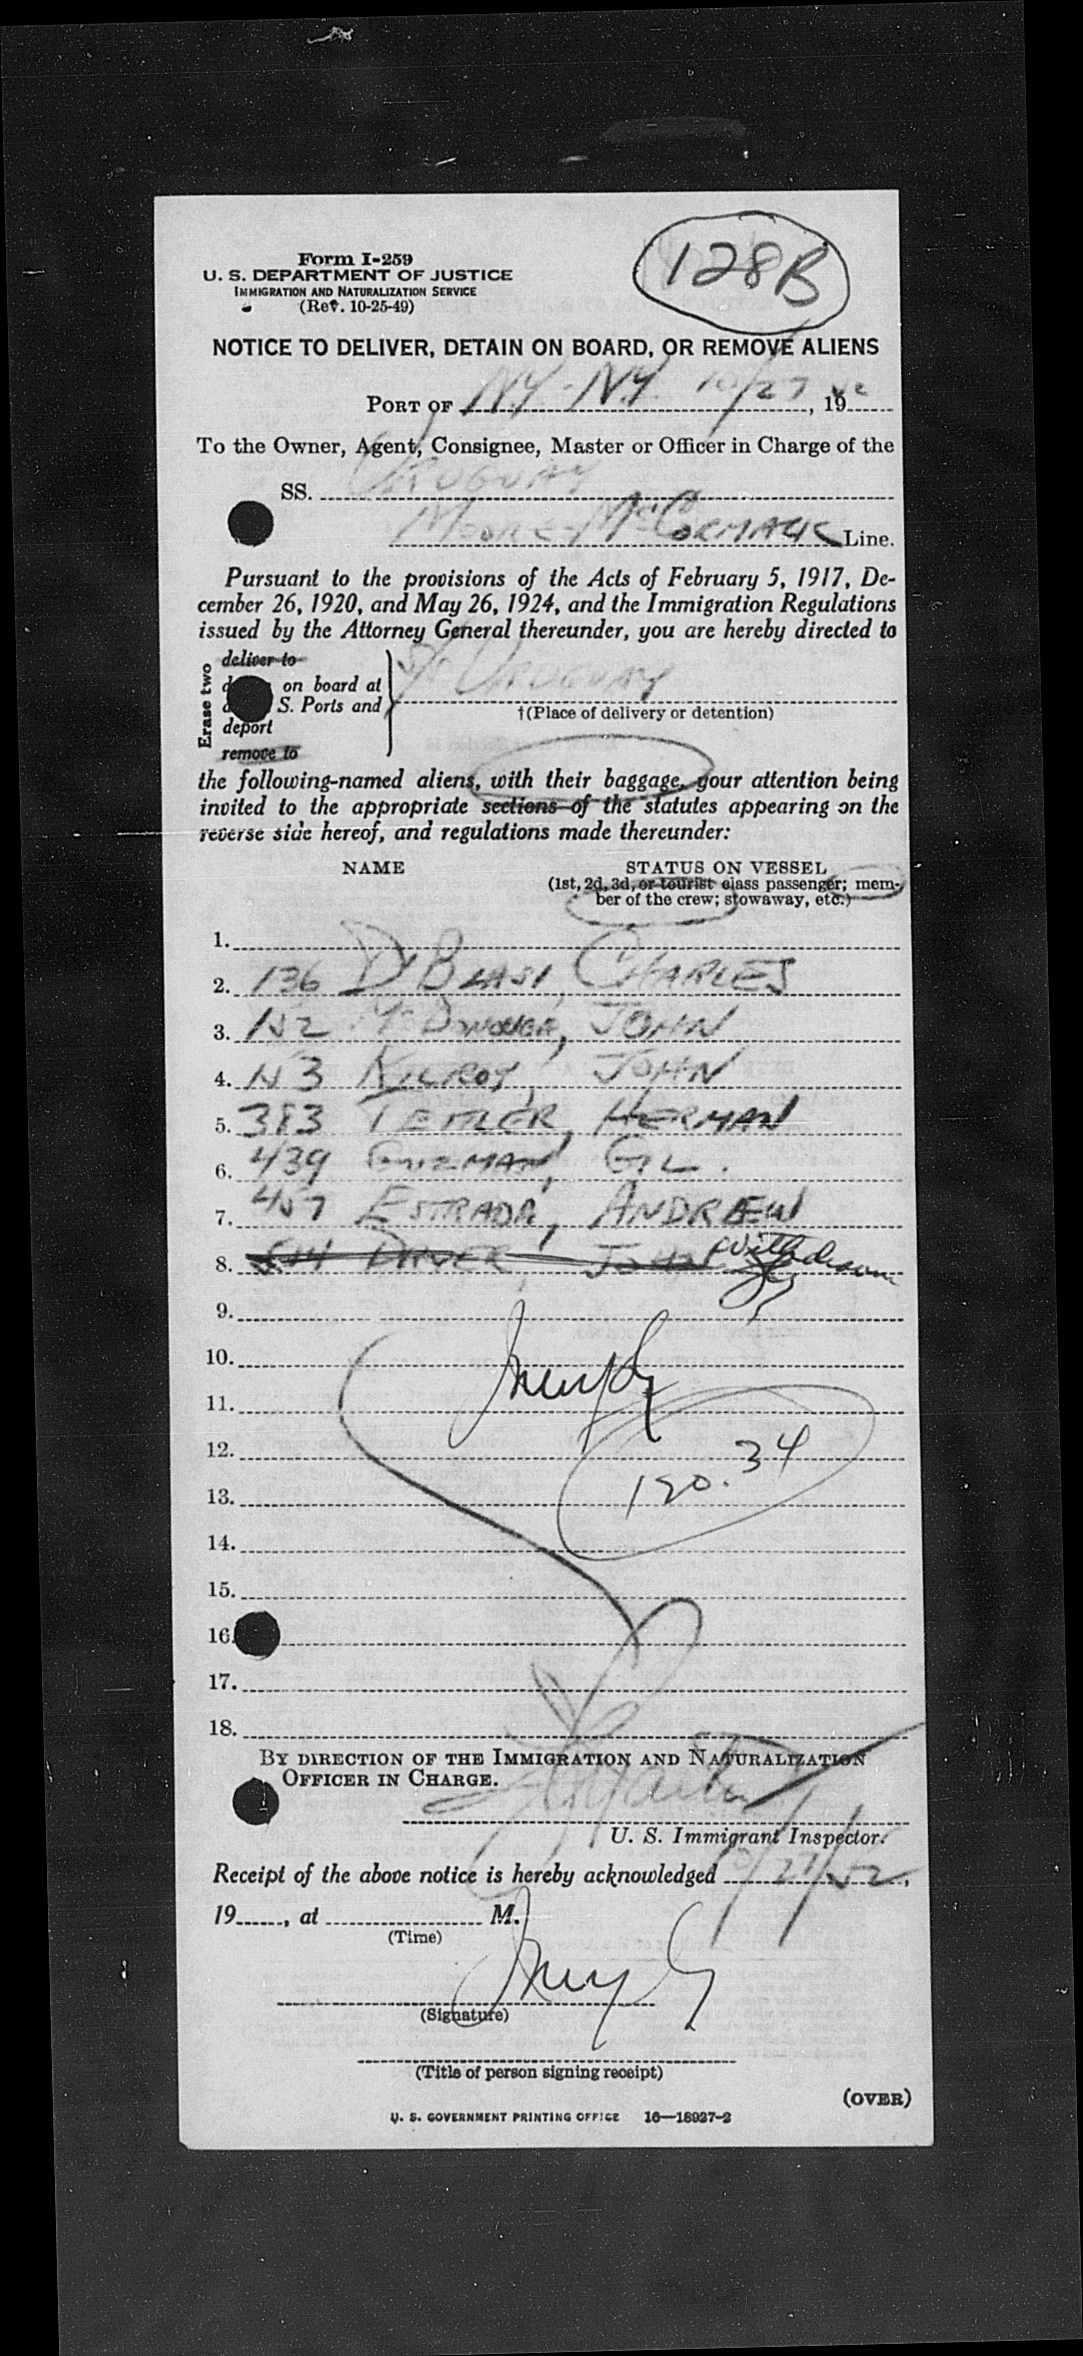 128B
Form I-259
U. S. DEPARTMENT OF JUSTICE
IMMIGRATION AND NATURALIZATION SERVICE
(Rev. 10-25-49)
NOTICE TO DELIVER, DETAIN ON BOARD, OR REMOVE ALIENS
PORT OF N.Y - N.Y. 10/27, 1952
To the Owner, Agent, Consignee, Master or Officer in Charge of the
SS. URUGUAY
MOORE-McCORMACK Line.
Pursuant to the provisions of the Acts of February 5, 1917, De-
cember 26, 1920, and May 26, 1924, and the Immigration Regulations
issued by the Attorney General thereunder, you are hereby directed to
Erase two
deliver to
on board at
S. Ports and
deport
remove to
S/S URUGUAY
†(Place of delivery or detention)
the following-named aliens, with their baggage, your attention being
invited to the appropriate sections of the statutes appearing on the
reverse side hereof, and regulations made thereunder:
NAME STATUS ON VESSEL
(1st, 2d, 3d, or tourist class passenger; mem-
ber of the crew; stowaway, etc.)
1.
2. 136 DI BLASI, CHARLES
3. 152 McDONOUGH, JOHN
4. 153 KILROY, JOHN
5. 383 HERMAN
6. 439 GUZMAN, GIL.
7. 457 ESTRADA, ANDREW
8. JOHN
9.
10.
11.
12.
13.
120.34
14.
15.
16.
17.
18.
BY DIRECTION OF THE IMMIGRATION AND NATURALIZATION
OFFICER IN CHARGE.
U. S. Immigrant Inspector.
Receipt of the above notice is hereby acknowledged 10/27/52,
19......, at M.
(Time)
(Signature)
(Title of person signing receipt)
(OVER)
U. S. GOVERNMENT PRINTING OFFICE 16—18927-2